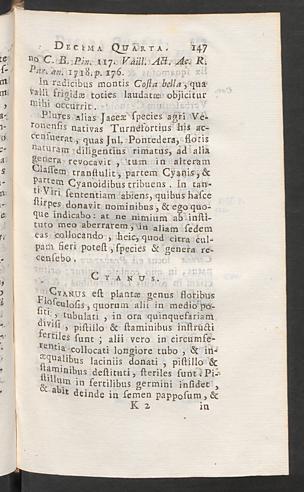 DECIMA QUARTA. 147
no C. B. Pin. 117. Vaill. Act. Ac. R.
Par. an. 1718. p. 176.
In radicibus montis Costa bella, qua
valli frigidæ toties laudatæ objicitur
mihi occurrit.
Plures alias Jaceæ species agri Ve-
ronensis nativas Turnefortius his ac-
censuerat, quas Jul. Pontedera, floris
naturam diligentius rimatus, ad alia
genera revocavit, tum in alteram
Classem transtulit, partem Cyanis, &
partem Cyanoidibus tribuens. In tan-
ti Viri sententiam abiens, quibus hasce
stirpes donavit nominibus, & ego quo-
que indicabo: at ne nimium ab insti-
tuto meo aberrarem, in aliam sedem
eas collocando, heic, quod citra cul-
pam fieri potest, species & genera re-
censebo.
CYANUS.
CYANUS est plantæ genus floribus
Flosculosis, quorum alii in medio po-
siti, tubulati, in ora quinquefariam
divisi, pistillo & staminibus instructi
fertiles sunt; alii vero in circumfe-
rentia collocati longiore tubo, & in-
æqualibus laciniis donati, pistillo &
staminibus destituti, steriles sunt. Pi-
stillum in fertilibus germini insidet,
& abit deinde in semen papposum, &
K 2 in